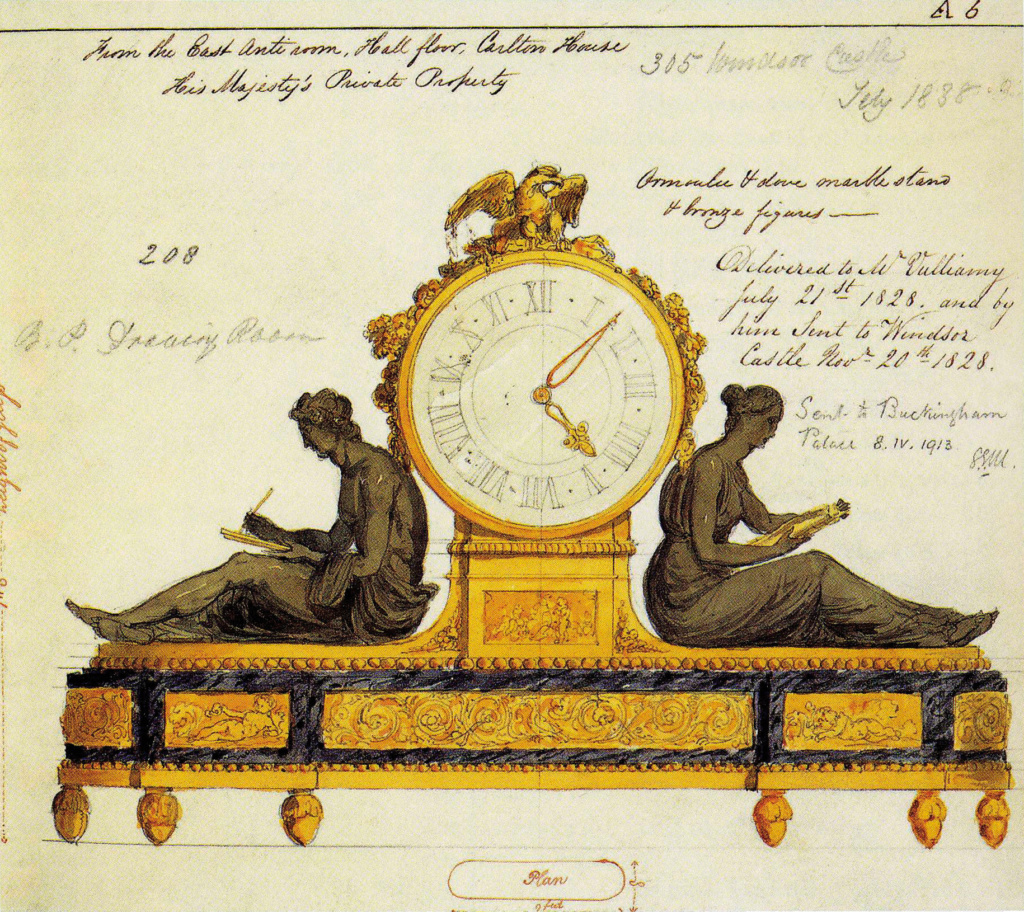 A 6
From the East Anti room, Hall floor, Carlton House
His Majesty's Private Property
305 Windsor Castle
July 1838
Ormoulu & dove marble stand
& bronze figures —
208
Delivered to Mr Vulliamy
July 21st 1828. and by
him Sent to Windsor
Castle Novr 20th 1828.
B. P. Drawing Room
Sent to Buckingham
Palace 8. IV. 1913
XII
I
II
III
IIII
V
VI
VII
VIII
IX
X
XI
Plan